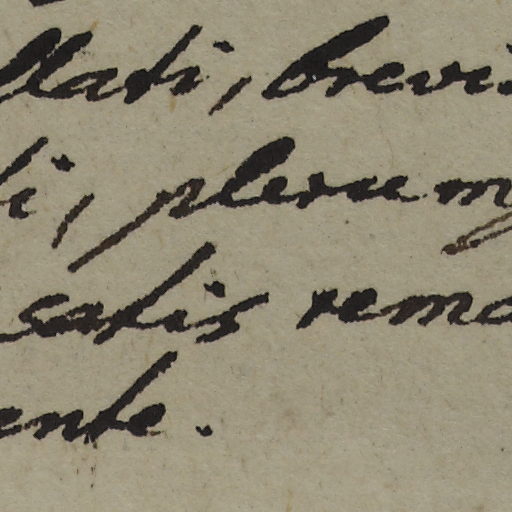 llati, brevi
i, plerumq
satis remo
ente.